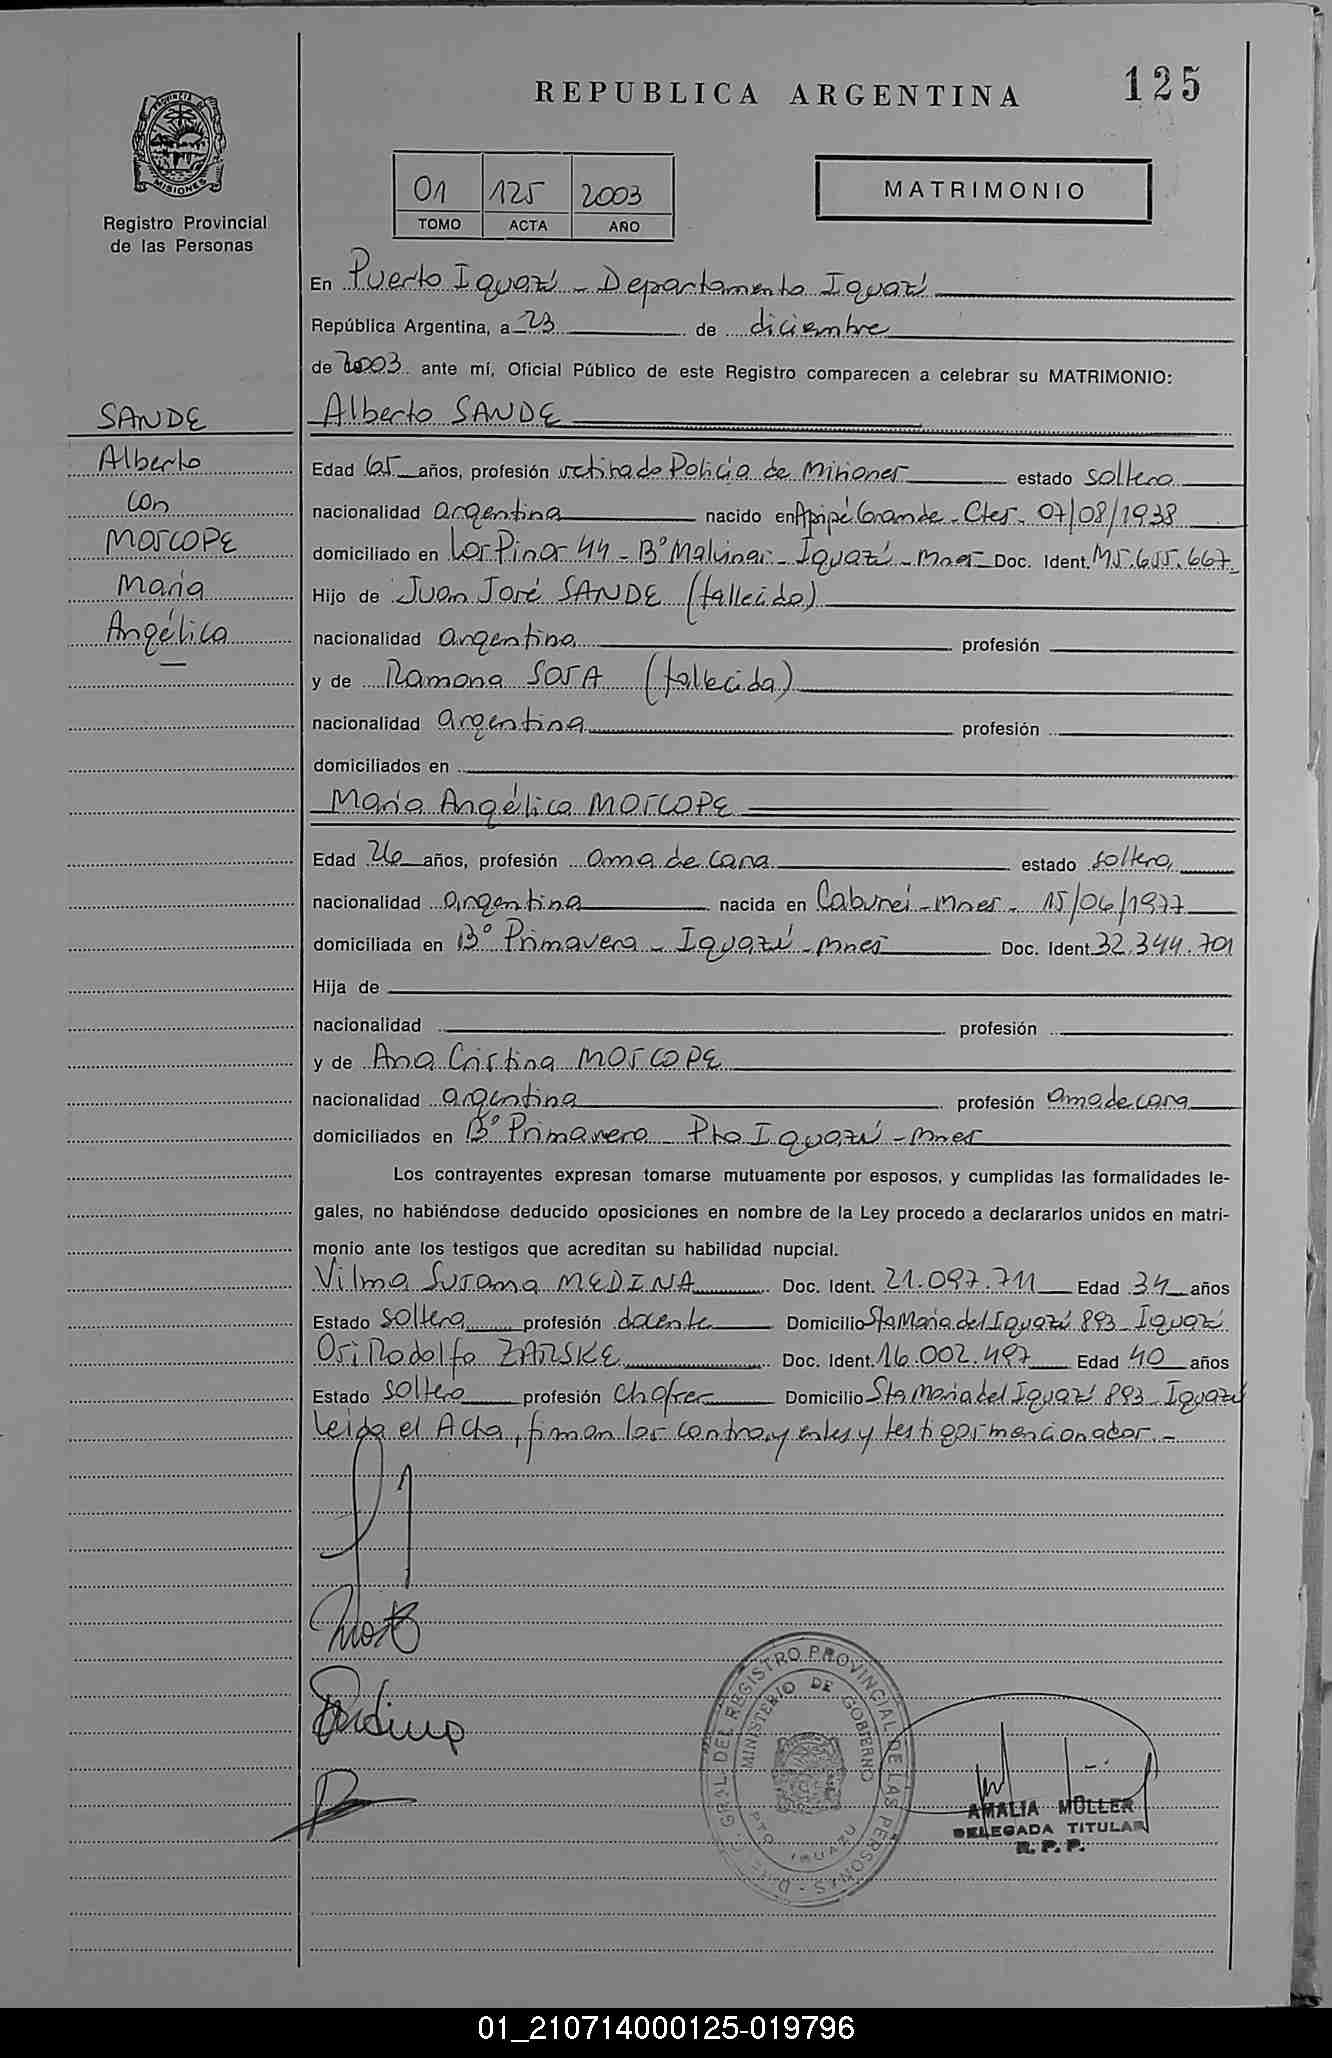 REPUBLICA ARGENTINA
125
PROVINCIA DE
MISIONES
Registro Provincial
de las Personas
01 125 2003
TOMO ACTA AÑO
MATRIMONIO
En Puerto Iguazú - Departamento Iguazú
República Argentina, a 23 de diciembre
de 2003 ante mí, Oficial Público de este Registro comparecen a celebrar su MATRIMONIO:
SANDE
Alberto
con
MOSCOPE
María
Angélica
Alberto SANDE
Edad 65 años, profesión retirado Policía de Misiones estado soltero
nacionalidad argentina nacido en Apipé Grande - Ctes - 07/08/1938
domiciliado en Los Pinos 44 - Bº Malvinas - Iguazú - Mnes Doc. Ident. M5.655.667
Hijo de Juan José SANDE (fallecido)
nacionalidad argentina profesión
y de Ramona SOSA (fallecida)
nacionalidad argentina profesión
domiciliados en
María Angélica MOSCOPE
Edad 26 años, profesión ama de casa estado soltera
nacionalidad argentina nacida en Caburei - Mnes - 15/06/1977
domiciliada en Bº Primavera - Iguazú - Mnes Doc. Ident. 32.344.701
Hija de
nacionalidad profesión
y de Ana Cristina MOSCOPE
nacionalidad argentina profesión ama de casa
domiciliados en Bº Primavera - Pto Iguazú - Mnes
Los contrayentes expresan tomarse mutuamente por esposos, y cumplidas las formalidades le-
gales, no habiéndose deducido oposiciones en nombre de la Ley procedo a declararlos unidos en matri-
monio ante los testigos que acreditan su habilidad nupcial.
Vilma Susana MEDINA Doc. Ident. 21.097.711 Edad 34 años
Estado soltera profesión docente Domicilio Sta María del Iguazú 893 - Iguazú
Osi Rodolfo ZARSKE Doc. Ident. 16.002.497 Edad 40 años
Estado soltero profesión chofer Domicilio Sta María del Iguazú 893 - Iguazú
Leída el Acta, firman los contrayentes y testigos mencionados.-
DIREC. GRAL. DEL REGISTRO PROVINCIAL DE LAS PERSONAS
MINISTERIO DE GOBIERNO
PTO IGUAZU
AMALIA MÜLLER
DELEGADA TITULAR
R. P. P.
01_210714000125-019796